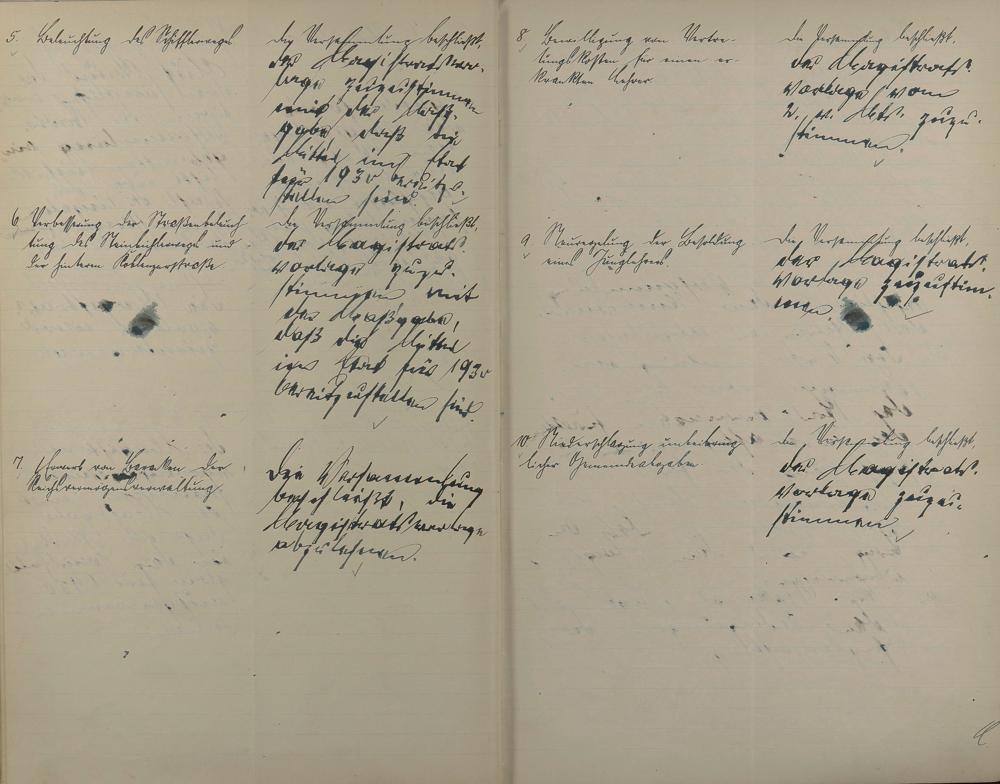 5. Beleuchtung des Schifflerwegs
die Versammlung beschließt,
der Magistratsvor-
lage zuzustimmen
mit der Maß-
gabe, daß die
Mittel im Etat
für 1930 bereitzu-
stellen sind.
6. Verbesserung der Straßenbeleuch-
tung des Steinbühlerwegs und
der hinteren Koblenzerstraße
die Versammlung beschließt,
der Magistrats-
vorlage zuzu-
stimmen mit
der Maßgabe,
daß die Mittel
im Etat für 1930
bereitzustellen sind.
7. Erwerb von Baracken der
Reichsvermögensverwaltung.
Die Versammlung
beschließt, die
Magistratsvorlage
abzulehnen.
8. Bewilligung von Vertre-
tungskosten für einen er-
krankten Lehrer
die Versammlung beschließt,
der Magistrats-
vorlage vom
2. v. Mts. zuzu-
stimmen.
9. Neuregelung der Besoldung
eines Junglehrers.
die Versammlung beschließt,
der Magistrats-
vorlage zuzustim-
men.
10 Niederschlagung unbeibring-
licher Gemeindeabgaben
die Versammlung beschließt,
der Magistrats-
vorlage zuzu-
stimmen.